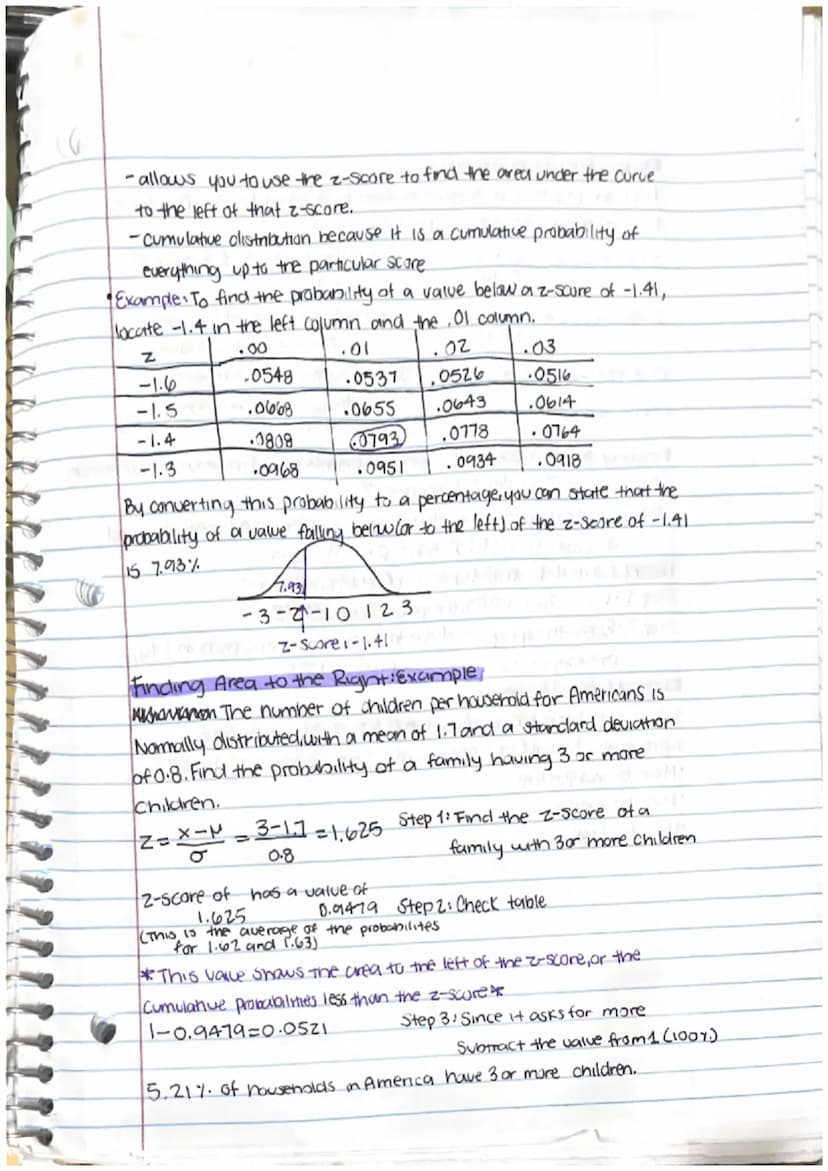 - allows you to use the z-score to find the area under the curve
to the left of that z-score.
- cumulative distribution because it is a cumulative probability of
everything up to the particular score
•Example: To find the probability of a value below a z-score of -1.41,
locate -1.4 in the left column and the .01 column.
z .00 .01 .02 .03
-1.6 .0548 .0537 .0526 .0516
-1.5 .0668 .0655 .0643 .0614
-1.4 .0808 .0793 .0778 .0764
-1.3 .0968 .0951 .0934 .0918
By converting this probability to a percentage, you can state that the
probability of a value falling below (or to the left) of the z-score of -1.41
is 7.93%
7.93
-3 -2 -1 0 1 2 3
z-score: -1.41
Finding Area to the Right: Example
The number of children per household for Americans is
Normally distributed, with a mean of 1.7 and a standard deviation
of 0.8. Find the probability of a family having 3 or more
children.
Z = x-μ/σ = 3-1.7/0.8 = 1.625 Step 1: Find the z-score of a
family with 3 or more children
z-score of has a value of
1.625 0.9479 Step 2: Check table
(This is the average of the probabilites
for 1.62 and 1.63)
* This value shows the area to the left of the z-score, or the
cumulative probabilities less than the z-score *
1-0.9479=0.0521 Step 3: Since it asks for more
subtract the value from 1 (100%)
5.21% of households in America have 3 or more children.